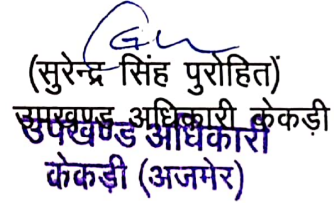 (सुरेन्द्र सिंह पुरोहित)
उपखण्ड अधिकारी केकड़ी
उपखण्ड अधिकारी
केकड़ी (अजमेर)